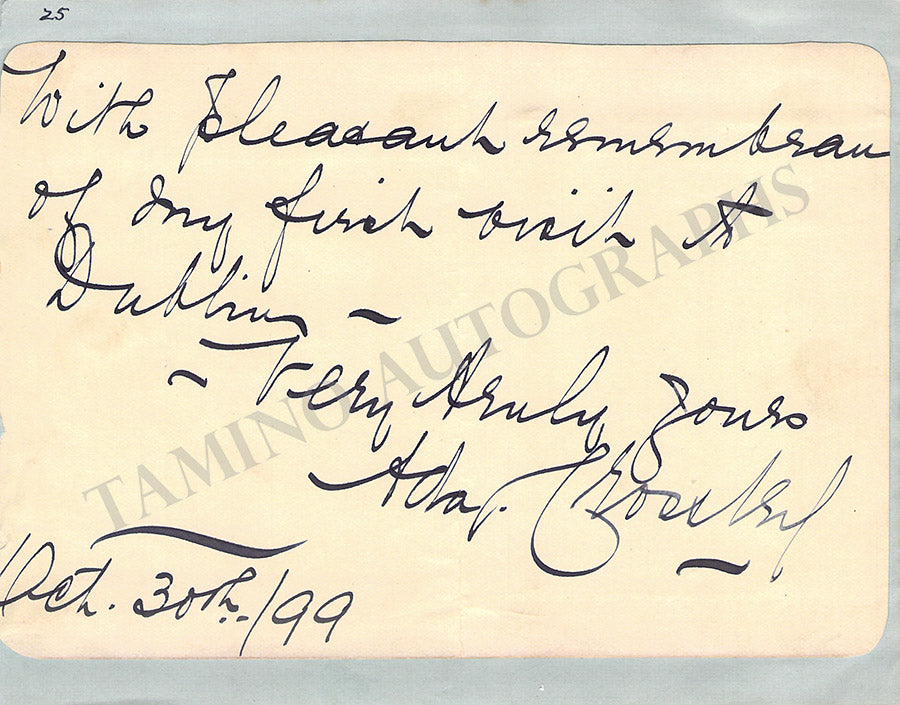 25
With pleasant remembran
of my first visit to
Dublin –
– Very truly yours
Ada Crossley
Oct. 30th./99
TAMINO AUTOGRAPHS